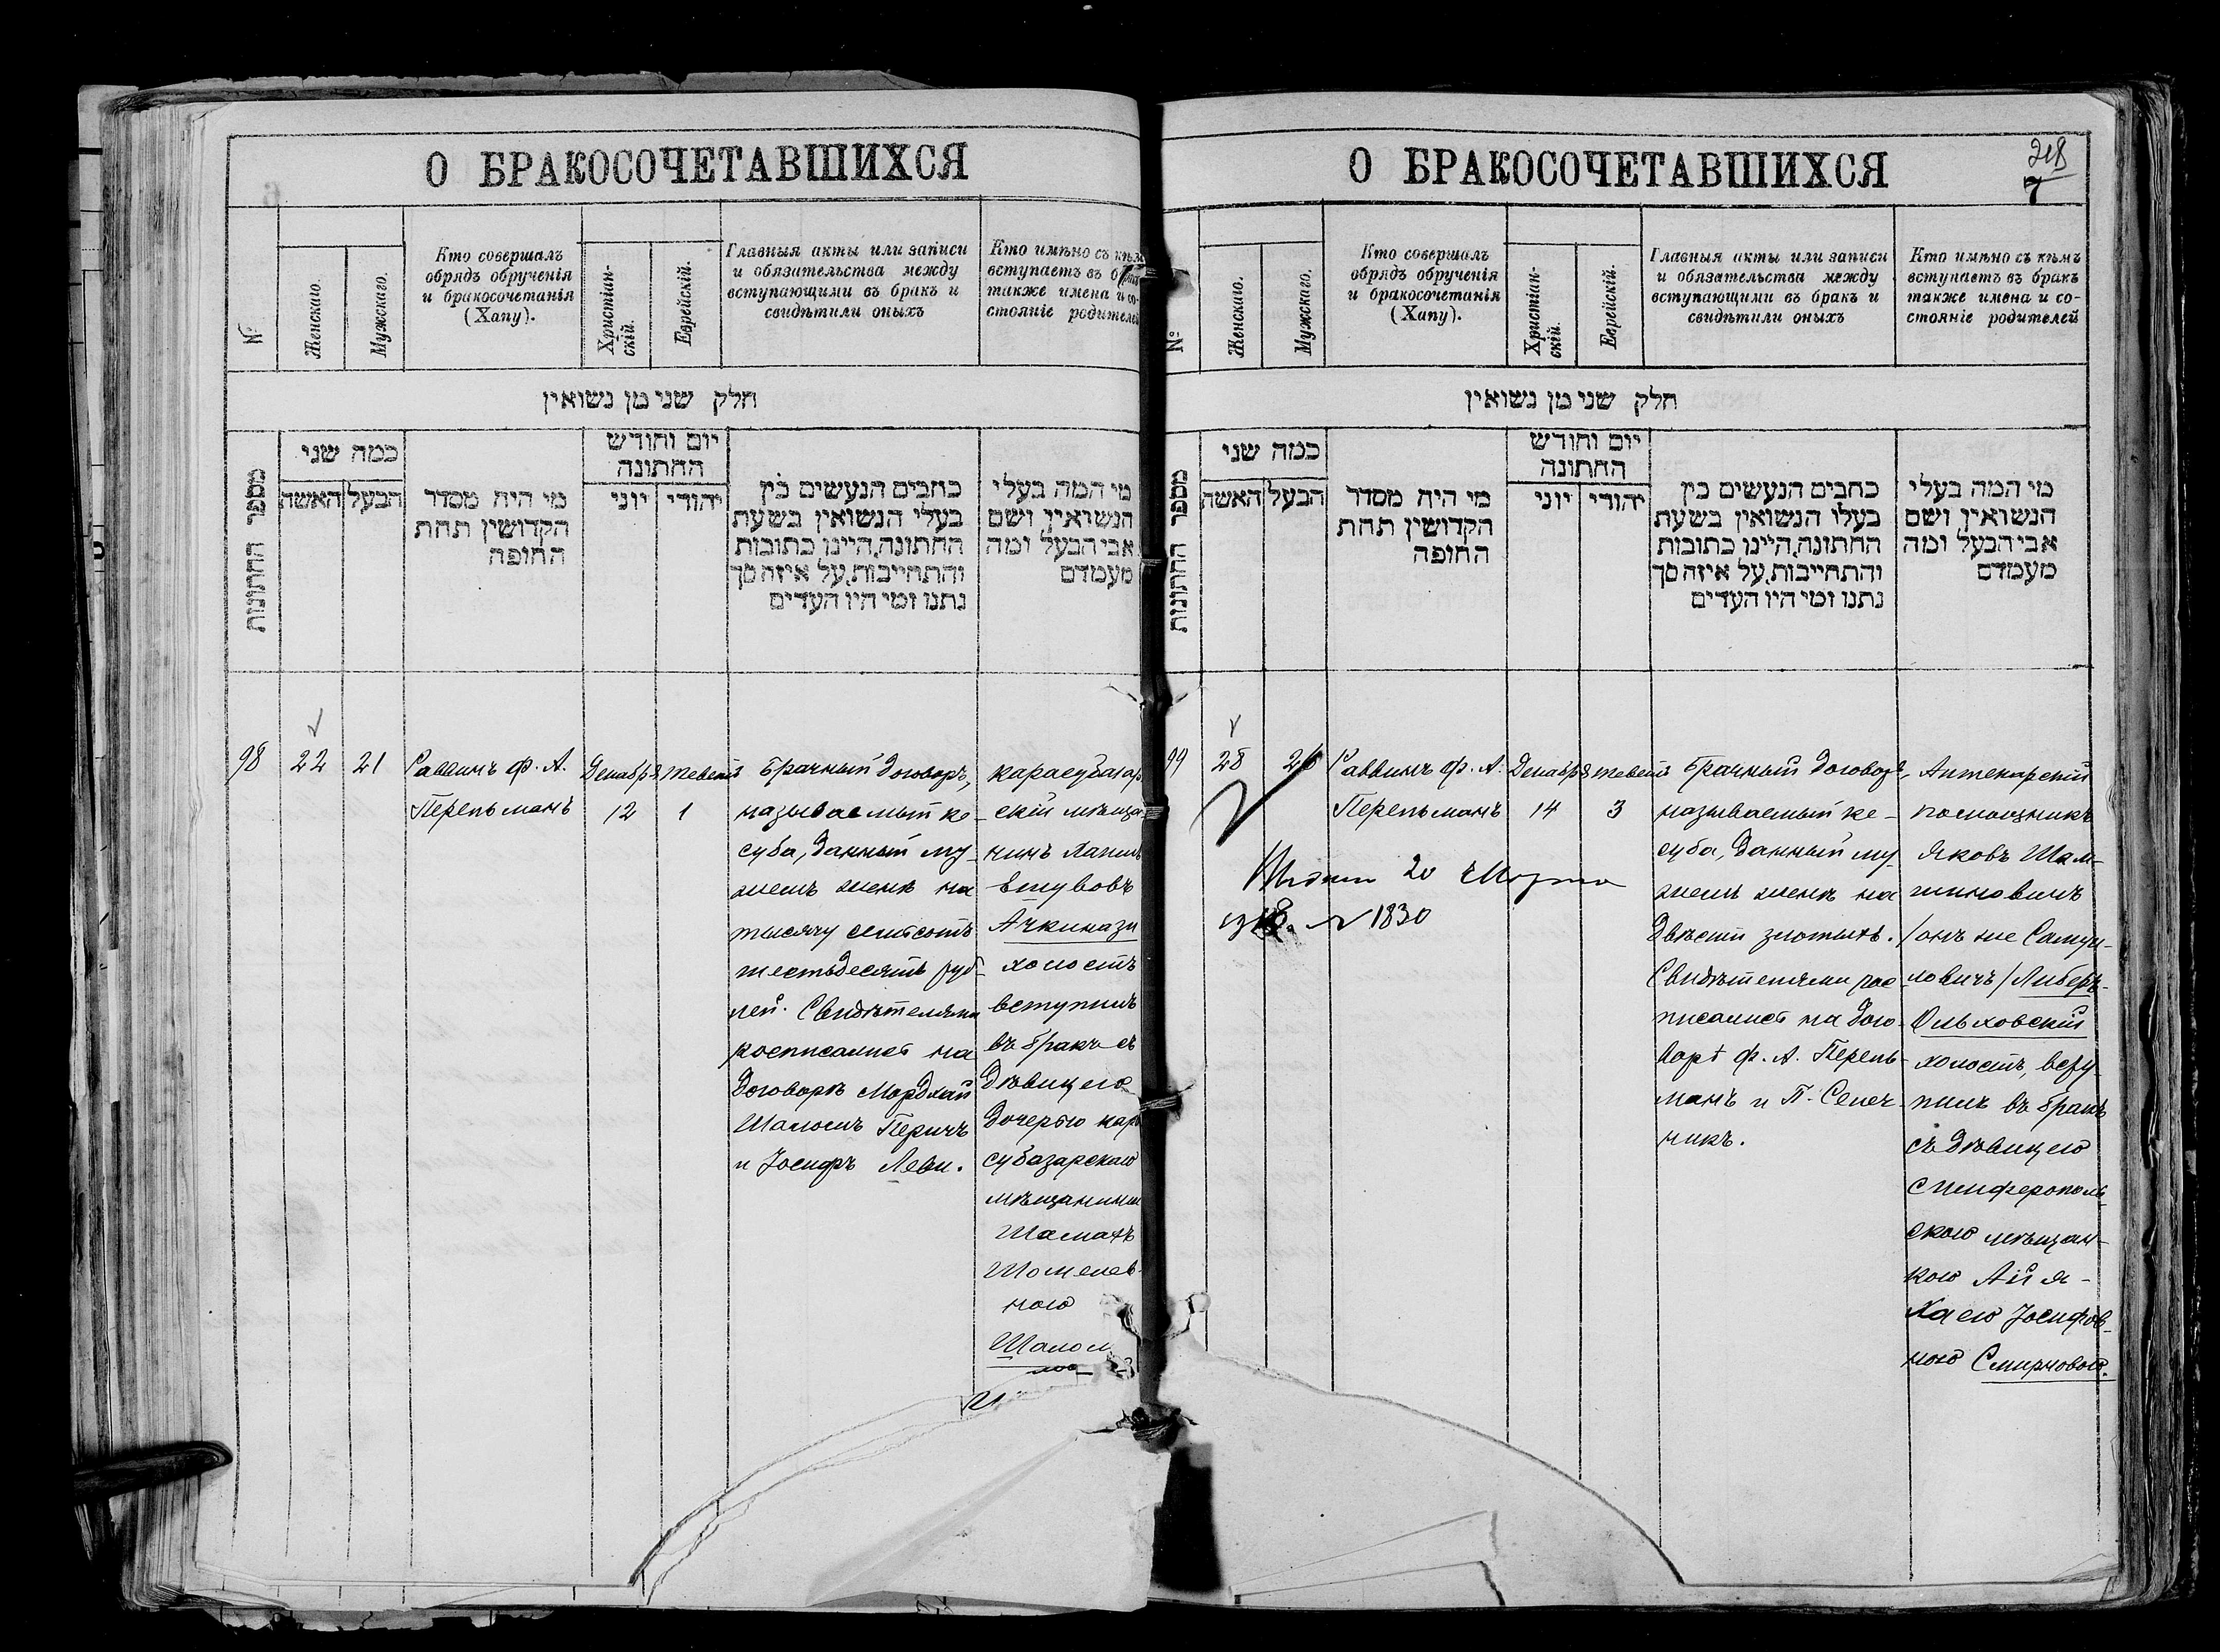 О БРАКОСОЧЕТАВШИХСЯ
№
Женскаго.
Мужскаго.
Кто совершалъ
обрядъ обрученія
и бракосочетанія
(Хапу).
Христіан-
скій.
Еврейскій.
Главныя акты или записи
и обязательства между
вступающими въ бракъ и
свидѣтили оныхъ
Кто имѣно съ кѣмъ
вступаетъ въ
также имена и со-
стояніе родителей
חלק שני מן נשואין
מספר החתונות
כמה שני
האשה
הבעל
מי היה מסדר
הקדושין תחת
החופה
יום וחודש
החתונה
יוני
יהודי
כתבים הנעשים בין
בעלי הנשואין בשעת
החתונה,היינו כתובות
והתחייבות,על איזה סך
נתנו ומי היו העדים
מי המה בעלי
הנשואין ושם
אבי הבעל ומה
מעמדם
98
22
21
Раввинъ Ф. А.
Перельманъ
Декабря
12
Тевета
1
Брачный договоръ,
называемый ке-
суба, данный му-
жемъ женѣ на
тысячу семьсотъ
шестьдесятъ руб-
лей. Свидѣтелями
росписались на
договорѣ Мордхай
Шаломъ Перичъ
и Іосифъ Леви.
карасубазар
скій мѣща-
нинъ
Ешувовъ
Ачкинази
холостъ
вступилъ
въ бракъ съ
дѣвицею
дочерью кара
субазарскаго
мѣщанина
Шаломъ
О БРАКОСОЧЕТАВШИХСЯ
218
7
№
Женскаго.
Мужскаго.
Кто совершалъ
обрядъ обрученія
и бракосочетанія
(Хапу).
Христіан-
скій.
Еврейскій.
Главныя акты или записи
и обязательства между
вступающими въ бракъ и
свидѣтили оныхъ
Кто имѣно съ кѣмъ
вступаетъ въ бракъ
также имена и со-
стояніе родителей
חלק שני מן נשואין
מספר החתונות
כמה שני
האשה
הבעל
מי היה מסדר
הקדושין תחת
החופה
יום וחודש
החתונה
יוני
יהודי
כתבים הנעשים בין
בעלי הנשואין בשעת
החתונה,היינו כתובות
והתחייבות,על איזה סך
נתנו ומי היו העדים
מי המה בעלי
הנשואין ושם
אבי הבעל ומה
מעמדם
99
28
26
Раввинъ Ф. А.
Перельманъ
20 Марта
1830
Декабря
14
Тевета
3
Брачный договоръ,
называемый ке-
суба, данный му-
жемъ женѣ на
двѣсти злотыхъ.
Свидѣтелями рос-
писались на дого-
ворѣ Ф. А. Перель-
манъ и П. Селеч-
никъ.
Аптекарскій
помощникъ
Яковъ
/онъ же Самуи-
ловичъ/ Либеръ-
Ольховскій
холостъ, всту-
пилъ въ бракъ
съ дѣвицею
симферополь-
скою мѣщан-
кою
Хаею Іосифов-
ною Смирновою.